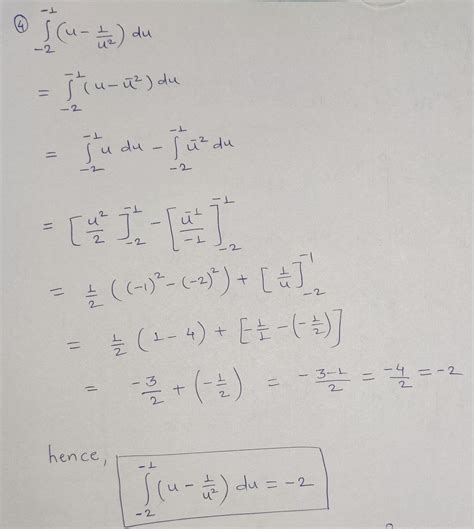 ④ ∫_{-2}^{-1} (u - 1/u²) du
= ∫_{-2}^{-1} (u - u^{-2}) du
= ∫_{-2}^{-1} u du - ∫_{-2}^{-1} u^{-2} du
= [u²/2]_{-2}^{-1} - [u^{-1}/-1]_{-2}^{-1}
= 1/2 ((-1)² - (-2)²) + [1/u]_{-2}^{-1}
= 1/2 (1 - 4) + [-1/1 - (-1/2)]
= -3/2 + (-1/2) = -3-1/2 = -4/2 = -2
hence,
∫_{-2}^{-1} (u - 1/u²) du = -2